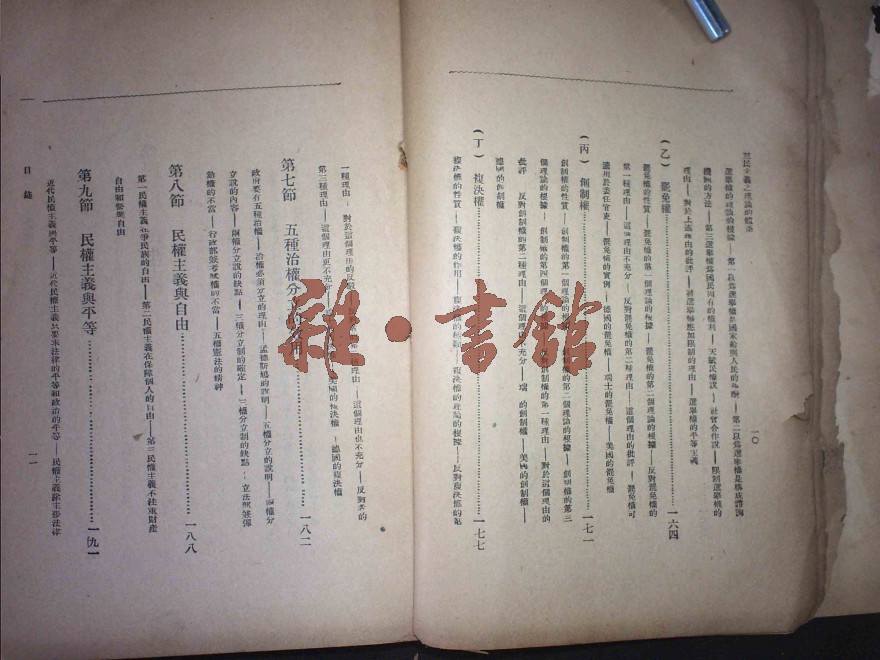 三民主義之理論的體系
一〇
選舉權的理論的根據——第一以爲選舉權是國家給與人民的
第二以爲選舉權是構成
機關的方法——第三選舉權爲國民固有的權利——天賦民權說——社會合作說——限制選舉權的
理由——對於上述理由的批評——將選舉權應加限制的理由——選舉權的平等主義
(乙) 罷免權……一六四
罷免權的性質——罷免權的第一個理論的根據——罷免權的第二個理論的根據——反對罷免權的
第一種理由——這個理由不充分——反對罷免權的第二種理由——這個理由的批評——罷免權可
適用於委任官吏——罷免權的實例——德國的罷免權——瑞士的罷免權——美國的罷免權
(丙) 創制權……一七一
創制權的性質——創制權的第一個理論的根據——創制權的第二個理論的根據——創制權的第三
個理論的根據——創制權的第四個理論的根據——反對創制權的第一種理由——對於這個理由的
批評——反對創制權的第二種理由——這個理由不充分——瑞士的創制權——美國的創制權——
德國的創制權
(丁) 複決權……一七七
複決權的性質——複決權的作用——複決權的種類——複決權的理論的根據——反對複決權的第
一種理由——對於這個理由的反
種理由——這個理由也不充分——反對者的
第三種理由——這個理由更不充分
美國的複決權——德國的複決權
第七節 五種治權分立
一八二
政府要有五種治權——治權必須分立的理由——孟德斯鳩的說明——五權分立的說明——兩權分
立說的內容——兩權分立說的缺點——三權分立制的確定——三權分立制的缺點——立法部彈
劾權的不當——行政部考試權的不當——五權憲法的精神
第八節 民權主義與自由……一八八
第一民權主義在爭民族的自由——第二民權主義在保障個人的自由——第三民權主義不注重財產
自由和契約自由
第九節 民權主義與平等……一九一
近代民權主義與平等——近代民權主義只要求法律的平等和政治的平等——民權主義除主張法律
目錄
一一
雜·書館